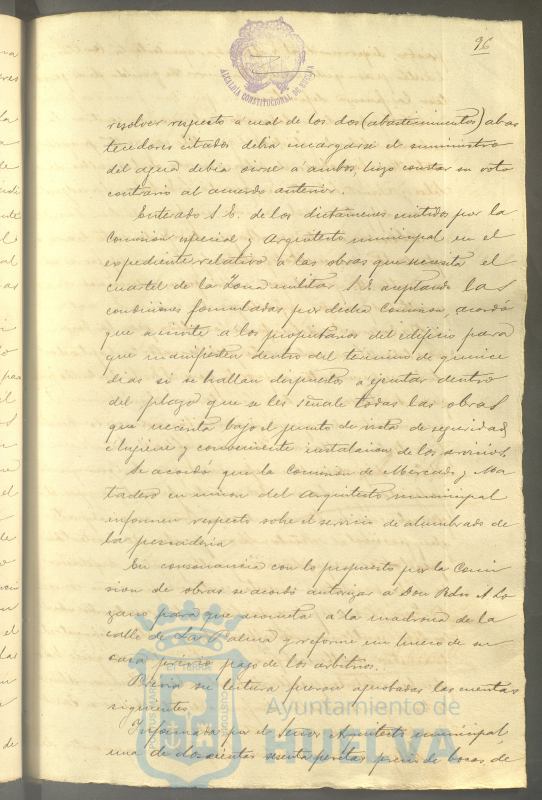 96
ALCALDIA CONSTITUCIONAL DE HUELVA
resolver respecto a cual de los dos (abastecimientos) abas
tecedores citados debia encargarse el suministro
del agua debia ser a ambos, hizo constar su voto
contrario al acuerdo anterior.
Enterado S. E. de los dictamenes emitidos por la
Comision especial y Arquitecto municipal en el
expediente relativo a las obras que necesita el
cuartel de la Zona militar S. E. aceptando las
condiciones formuladas por dicha Comision, acordó
que se invite a los propietarios del edificio para
que manifiesten dentro del termino de quince
dias si se hallan dispuestos a ejecutar dentro
del plazo que se les señale todas las obras
que necesita bajo el punto de vista de seguridad,
e higiene y conveniente instalacion de los servicios.
Se acordó que la Comision de Mercado y Ma
tadero en union del Arquitecto municipal
informen respecto sobre el servicio de alumbrado de
la pescaderia
En consonancia con lo propuesto por la Comi
sion de obras se acordó autorizar a Don Pedro A. Lo
zano para que acometa á la madrona de la
calle de La Palma y reforme un hueco de su
casa previo pago de los arbitrios.
Previa su lectura fueron aprobadas las cuentas
siguientes
Informada por el Señor Arquitecto municipal,
una de doscientas sesenta pesetas precio de bocas de
Ayuntamiento de
HUELVA